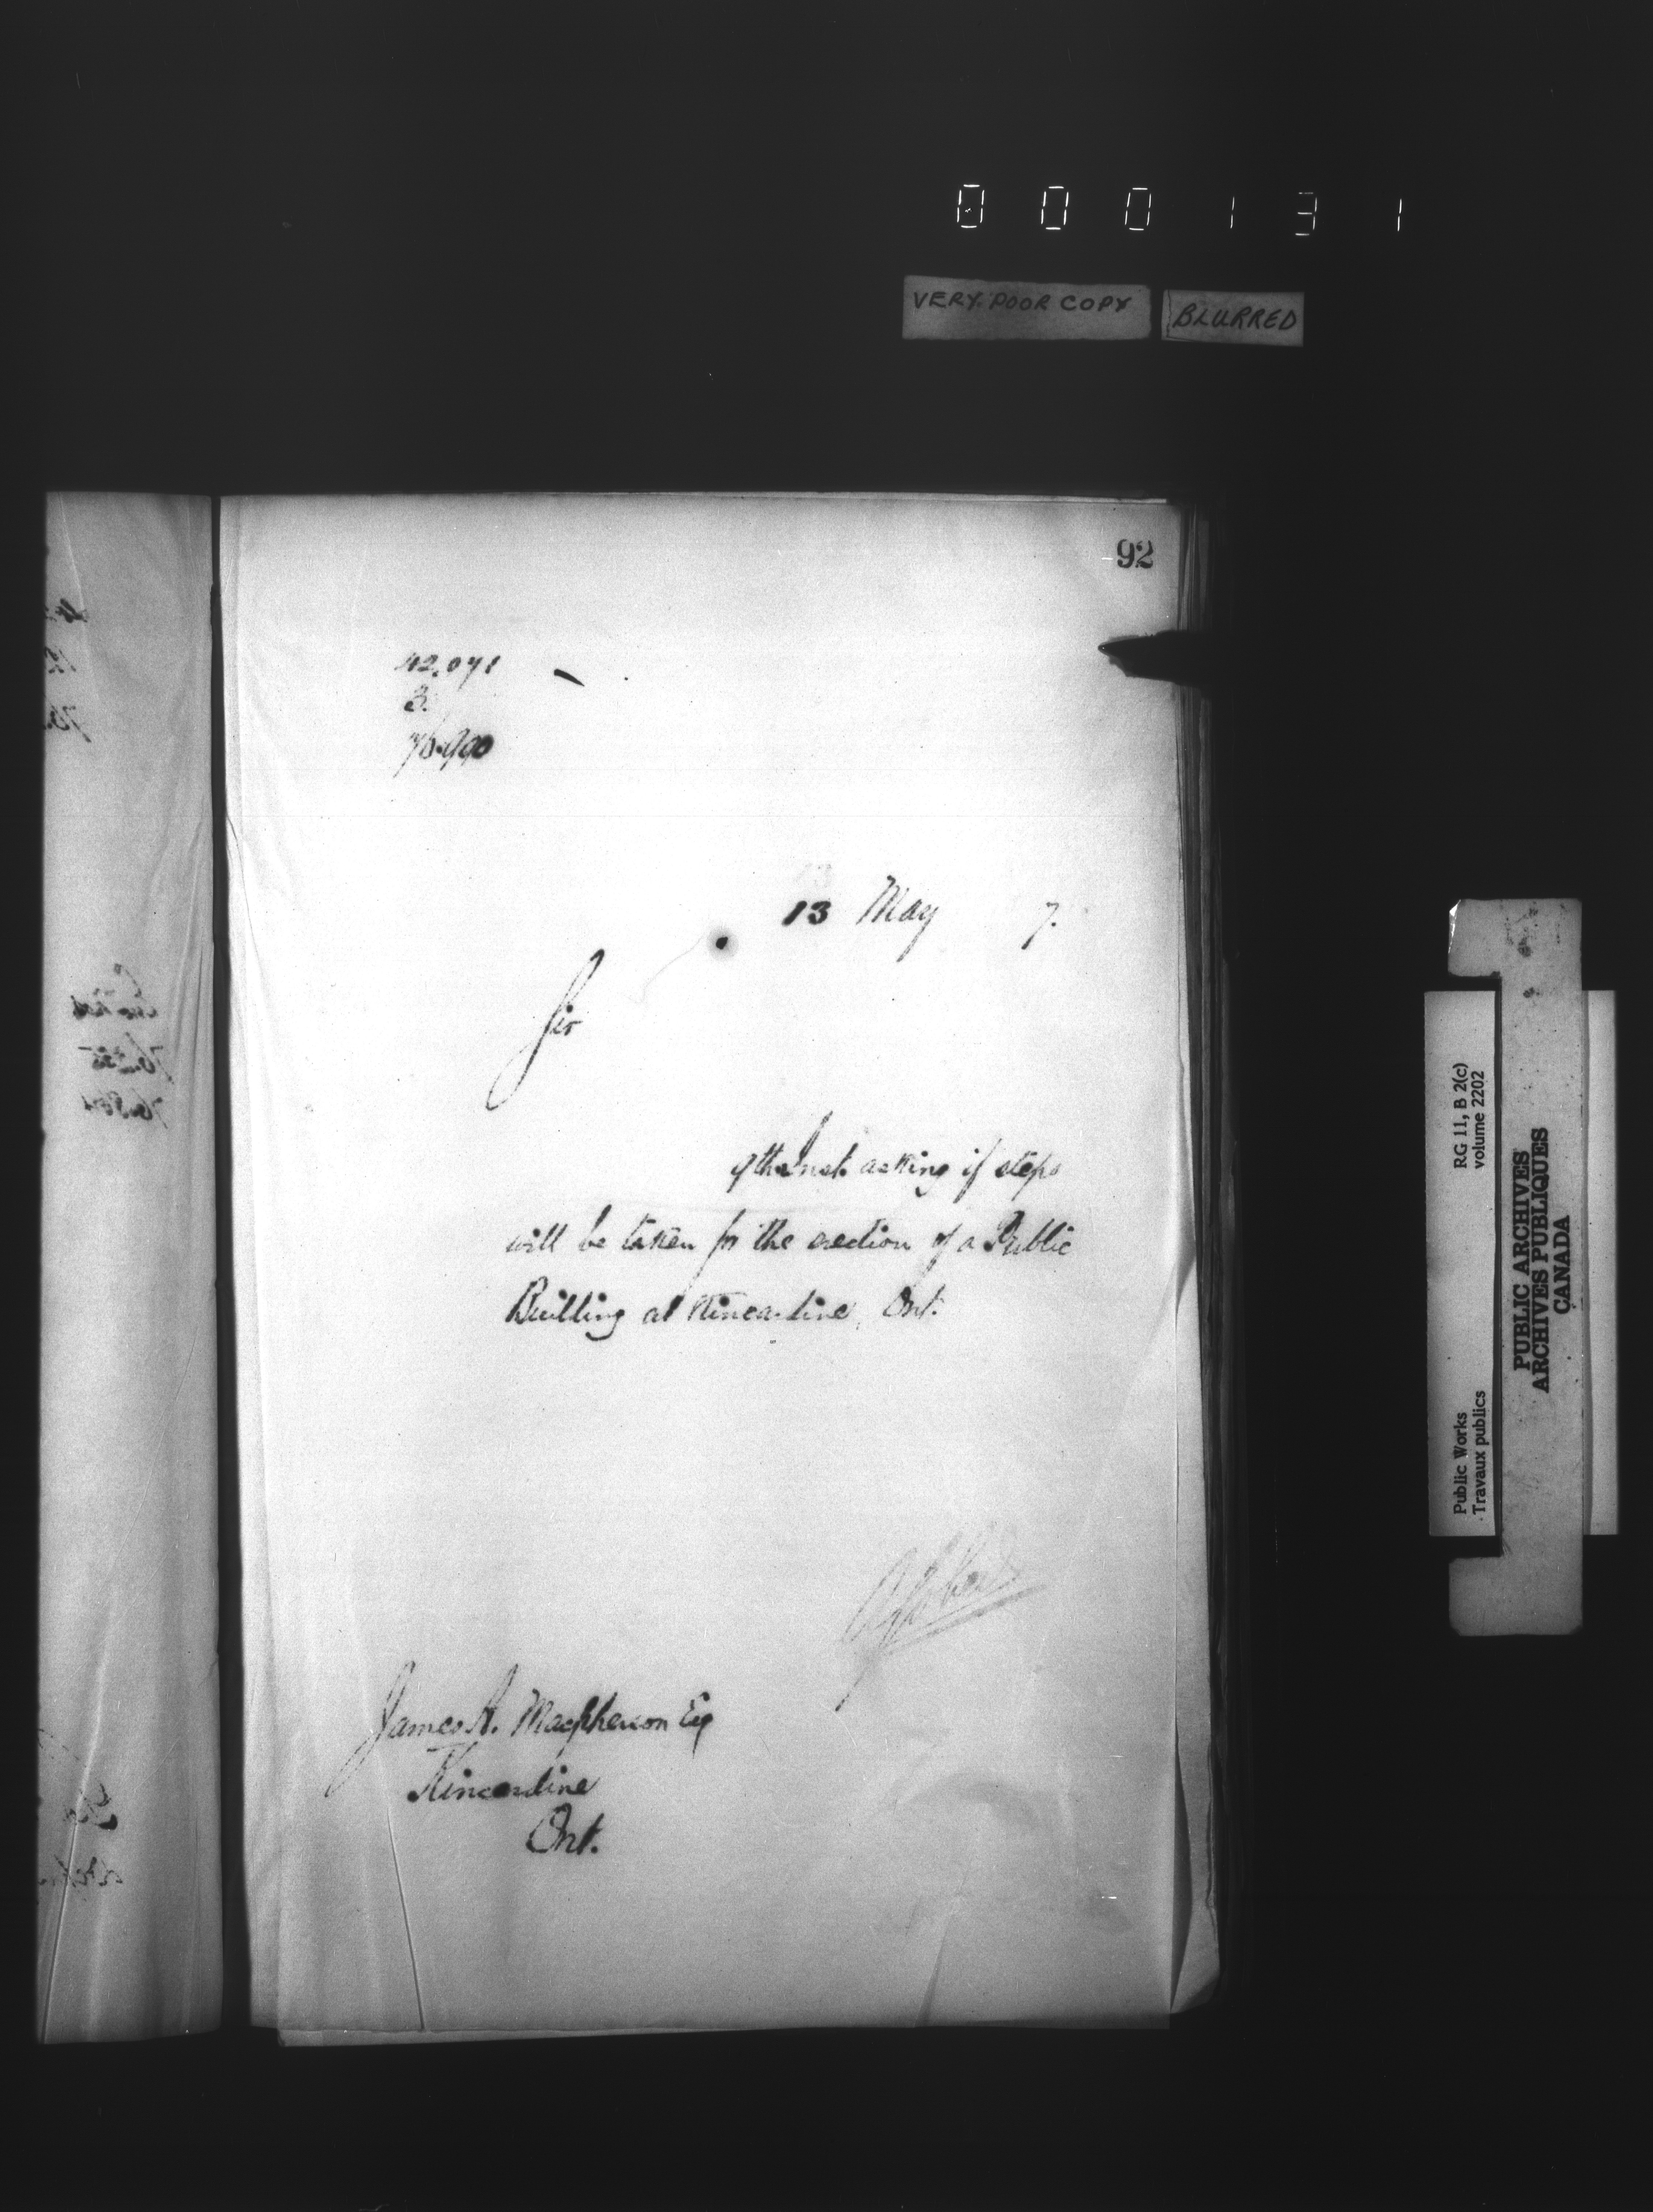 000131
VERY POOR COPY
BLURRED
92
42,071
3.
76.990
13 May 7.
Sir
9th Inst. asking if steps
will be taken for the erection of a Public
Building at Kincardine, Ont.
James A. Macpherson Esq
Kincardine
Ont.
Public Works RG 11, B 2(c)
Travaux publics volume 2202
PUBLIC ARCHIVES
ARCHIVES PUBLIQUES
CANADA